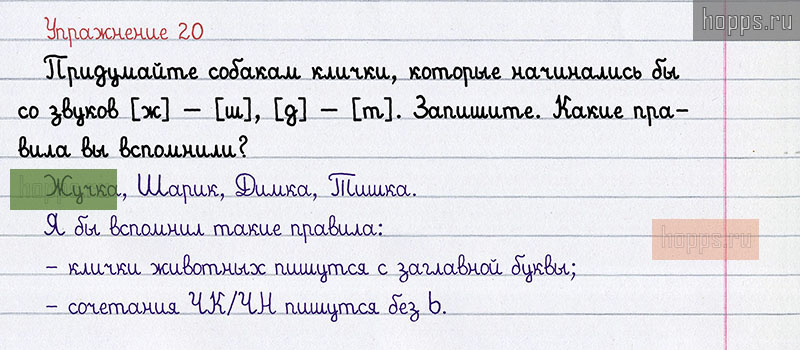 hopps.ru
Упражнение 20
Придумайте собакам клички, которые начинались бы
со звуков [ж] – [ш], [д] – [т]. Запишите. Какие пра-
вила вы вспомнили?
Жучка, Шарик, Димка, Тишка.
Я бы вспомнил такие правила:
hopps.ru
– клички животных пишутся с заглавной буквы;
– сочетания ЧК/ЧН пишутся без Ь.